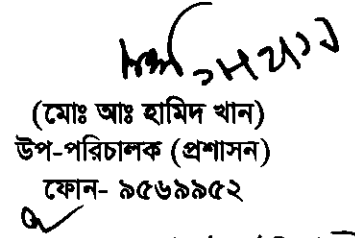 (মোঃ আঃ হামিদ খান)
উপ-পরিচালক (প্রশাসন)
ফোন- ৯৫৬৯৯৫২